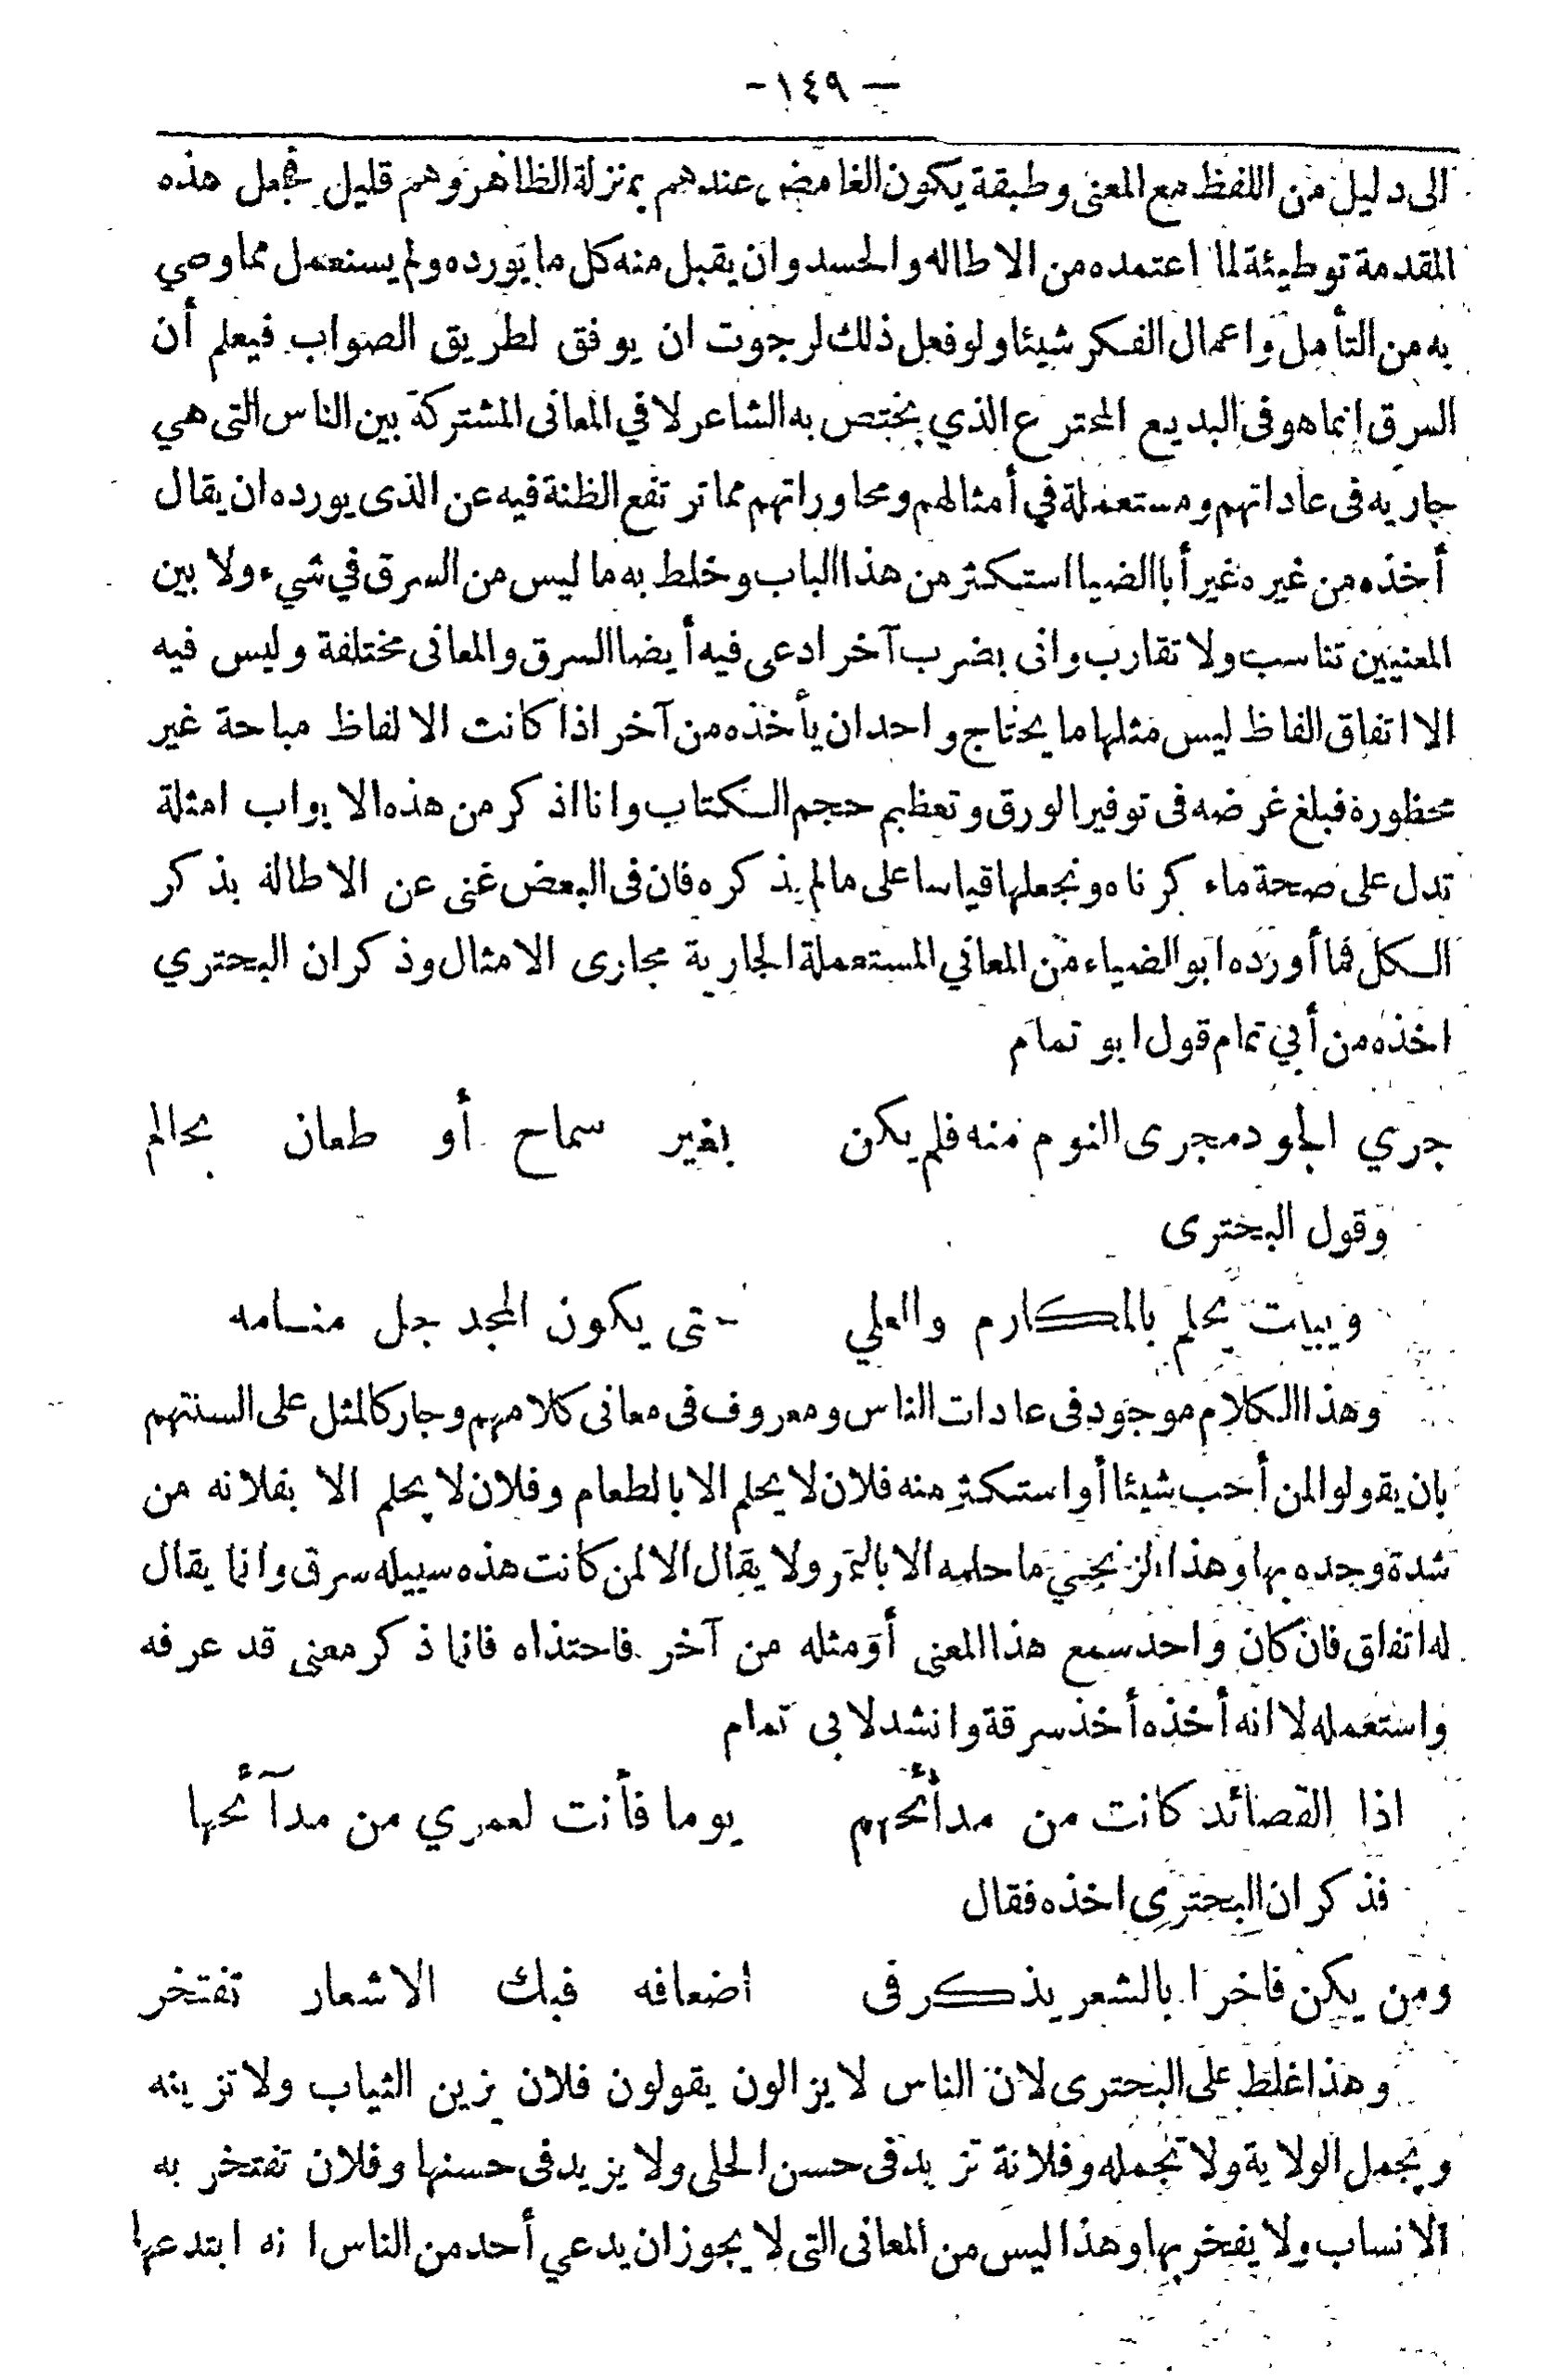 — ١٤٩ -
الى دليل من اللفظ مع المعنى وطبقة يكون الغامض عندهم بمنزلة الظاهر وهم قليل فجعل هذه
المقدمة توطيئة لما اعتمده من الاطاله والحسد وان يقبل منه كل ما يورده ولم يستعمل مما وصي
به من التأمل واعمال الفكر شيئا ولو فعل ذلك لرجوت ان يوفق لطريق الصواب فيعلم أن
السرق انما هو فى البديع المخترع الذي يختص به الشاعر لا في المعانى المشتركة بين الناس التى هي
جاريه فى عاداتهم ومستعملة في أمثالهم ومحاوراتهم مما ترتفع الظنة فيه عن الذى يورده ان يقال
أخذه من غيره غير أبا الضيا استكثر من هذا الباب وخلط به ما ليس من السرق في شيء ولا بين
المعنيين تناسب ولا تقارب وانى بضرب آخر ادعى فيه أيضا السرق والمعانى مختلفة وليس فيه
الا اتفاق الفاظ ليس مثلها ما يحتاج واحد ان يأخذه من آخر اذا كانت الالفاظ مباحة غير
محظورة فبلغ غرضه فى توفير الورق وتعظيم حجم الكتاب وانا اذكر من هذه الابواب امثلة
تدل على صحة ماء كرناه ونجعلها قياسا على ما لم يذكره فان فى البعض غنى عن الاطالة بذكر
الكل فما أورده ابو الضياء من المعاني المستعملة الجارية مجارى الامثال وذكر ان البحتري
اخذه من أبي تمام قول ابو تمام
جري الجود مجرى النوم منه فلم يكن بغير سماح أو طعان بحالم
وقول البحترى
ويبيت يحلم بالمكارم والعلي حتى يكون المجد جل منامه
وهذا الكلام موجود فى عادات الناس ومعروف فى معانى كلامهم وجار كالمثل على السنتهم
بان يقولوا لمن أحب شيئا أو استكثر منه فلان لا يحلم الا بالطعام وفلان لا يحلم الا بفلانه من
شدة وجده بها وهذا الزنجي ما حلمه الا بالتمر ولا يقال الا لمن كانت هذه سبيله سرق وانما يقال
له اتفاق فان كان واحد سمع هذا المعنى أو مثله من آخر فاحتذاه فانما ذكر معنى قد عرفه
واستعمله لا انه أخذه أخذ سرقة وانشد لابى تمام
اذا القصائد كانت من مدائحهم يوما فأنت لعمري من مدآئحها
فذكر ان البحترى اخذه فقال
ومن يكن فاخرا بالشعر يذكر فى اضعافه فبك الاشعار تفتخر
وهذا غلط على البحترى لان الناس لا يزالون يقولون فلان يزين الثياب ولا تزينه
ويجمل الولاية ولا تجمله وفلانة تزيد فى حسن الحلى ولا يزيد فى حسنها وفلان تفتخر به
الانساب ولا يفخر بها وهذا ليس من المعانى التى لا يجوز ان يدعي أحد من الناس انه ابتدعها